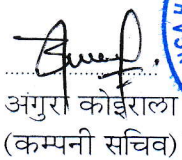 अंगुरा कोईराला
(कम्पनी सचिव)